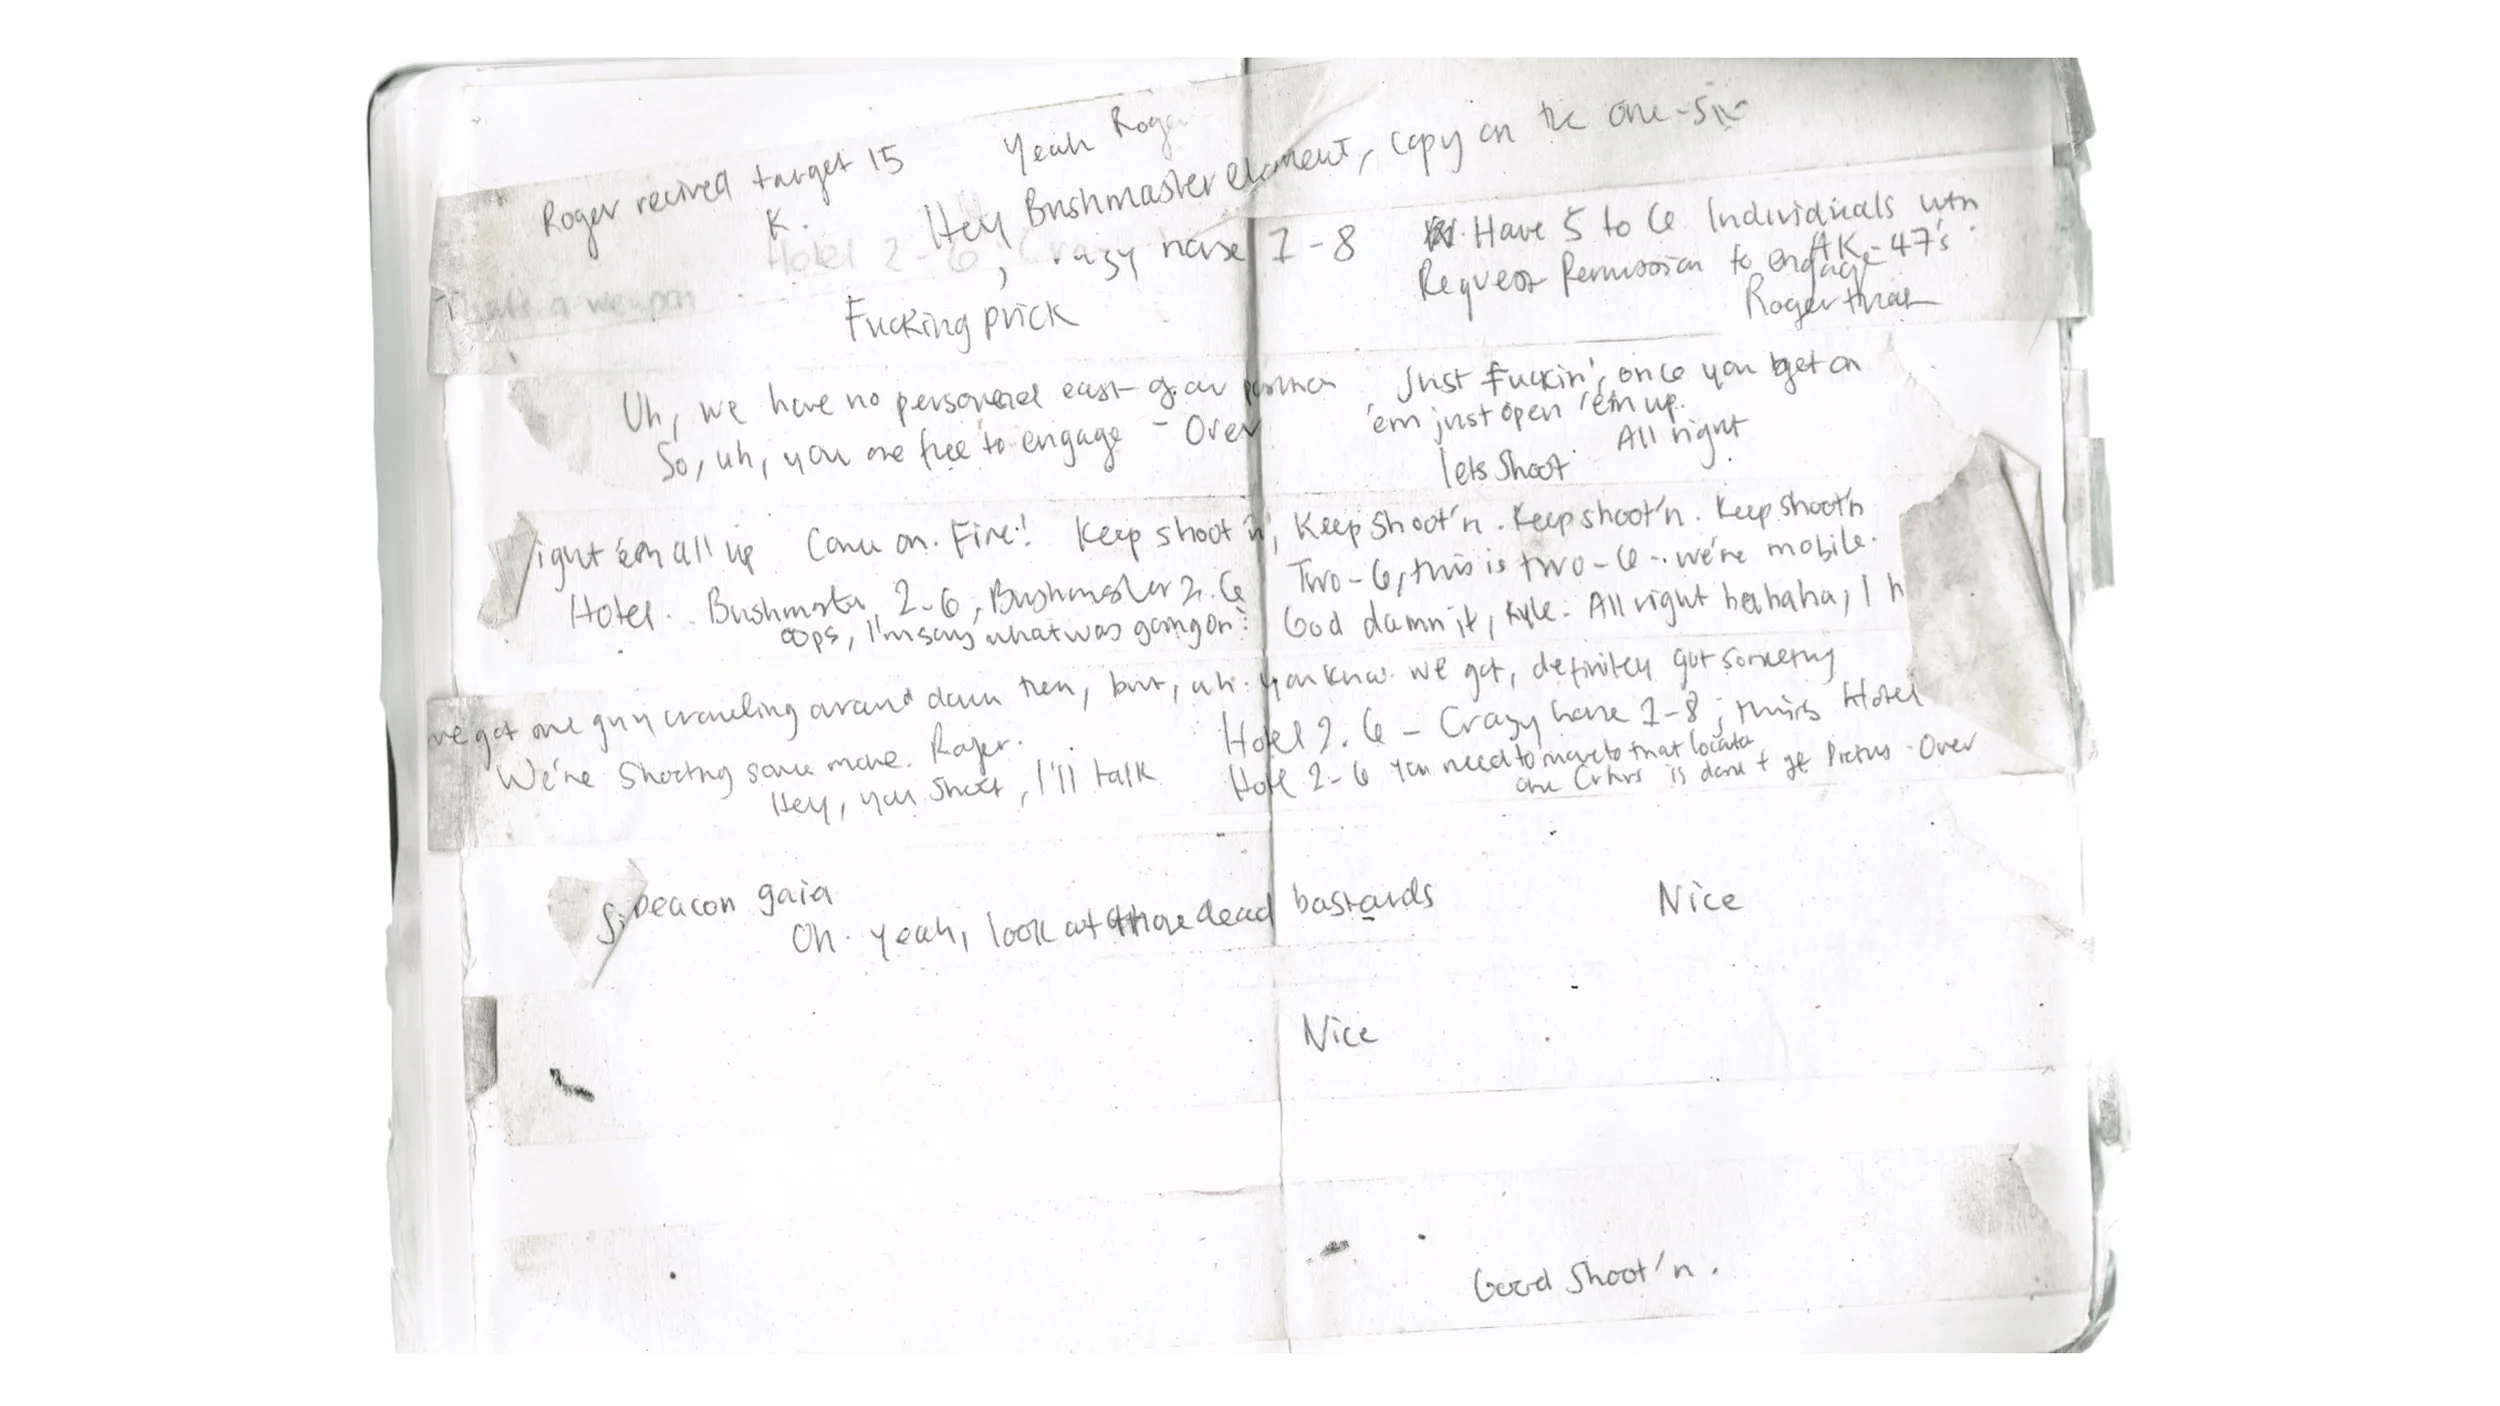 Roger recived target 15
Yeah Roge
K.
Hey Bushmaster element, copy on the one-six
Hotel 2-6 Crazy horse 1-8
Have 5 to 6 Individuals wth AK-47's.
Request Permission to engage
Roger that
That's a weapon
Fucking prick
Uh, we have no personnel east of our
So, uh, you are free to engage - Over
Just Fuckin', once you get on
'em just open 'em up.
All right
lets Shoot.
ight 'em all up Come on. Fire! Keep shoot'n, Keep Shoot'n. Keep shoot'n. Keep shoot'n
Hotel.. Bushmaster 2-6, Bushmaster 2.6 Two-6, this is two-6.. we're mobile.
oops, I'm say what was going on? God damn it, Kyle. All right hahaha, I h
we got one guy crawling around down there, but, uh. you know. we got, definitely got something
We're Shooting some more. Roger.
Hotel 2.6 - Crazy horse 1-8; this is Hotel
Hey, you shoot, I'll talk
Hotel 2-6 you need to move to that location
once is done + get Pictures - Over
Oh. yeah, look at those dead bastards
Nice
Nice
Good Shoot'n.